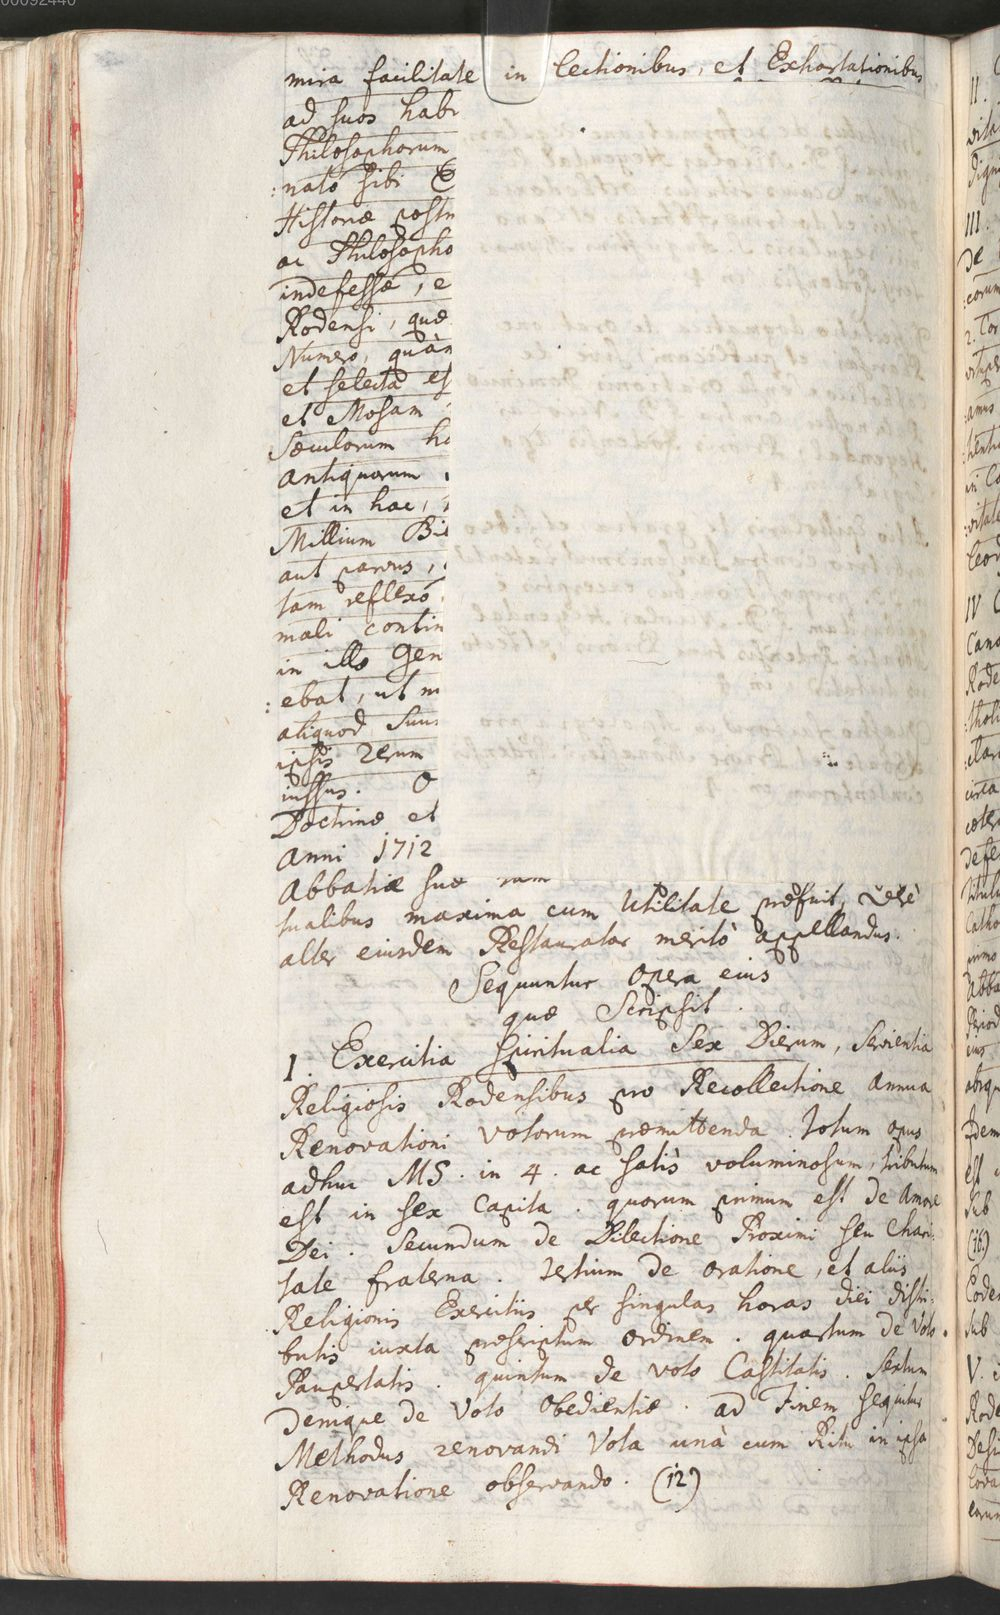 mira facilitate in lectionibus, et Exhortationibus
ad suos habi
Philosophorum
:nato sibi
Historiæ postr
ac Philosopho
indefessæ, e
Rodensi, quæ
Numero, quàm
et selecta es
et Mosam
Sæculorum ha
Antiquorum
et in hac,
Millium Bi
aut parvus,
tam reflexô
mali contin
in illo Gen
:ebat, ut m
aliquod Suu
ipsis rerum
iussus. O
Doctrinæ et
Anni 1712
Abbatiæ suæ tam
tualibus maxima cum Utilitate præfuit, verè
alter eiusdem Restaurator meritò appellandus.
Sequuntur Opera eius
quæ Scripsit.
I. Exercitia Spiritualia Sex Dierum, Servientia
Religiosis Rodensibus pro Recollectione Annua
Renovationi Votorum præmittenda. Totum opus
adhuc MS. in 4. ac satis voluminosum, tributum
est in sex Capita. quorum primum est de Amore
Dei. Secundum de Dilectione Proximi seu Chari:
tate fraterna. tertium de oratione, et aliis
Religionis Exercitiis per singulas horas diei distri:
butis iuxta præscriptum ordinem. quartum de Voto
Paupertatis. quintum de voto Castitatis. Sextum
Denique de Voto Obedientiæ. ad Finem sequitur
Methodus renovandi Vota unà cum Ritu in ipsa
Renovatione observando. (12)